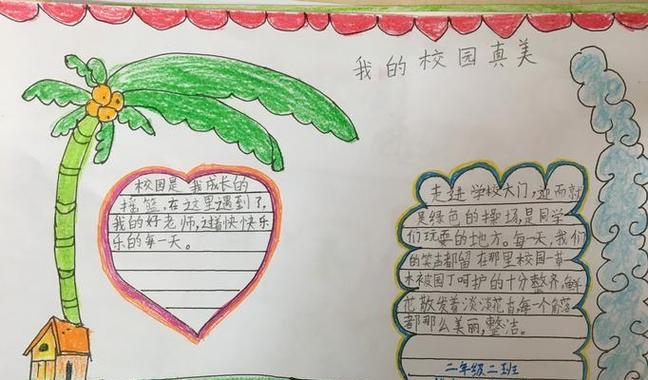 我的校园真美
校园是我成长的
摇篮,在这里遇到了,
我的好老师,过着快快乐
乐的每一天。
走进学校大门,迎面就
是绿色的操场,是同学
们玩耍的地方。每一天,我们
的笑声都留在那里校园一草
木被园丁呵护的十分整齐,鲜
花散发着淡淡花香,每一个角落
都那么美丽,整洁。
二年级二班